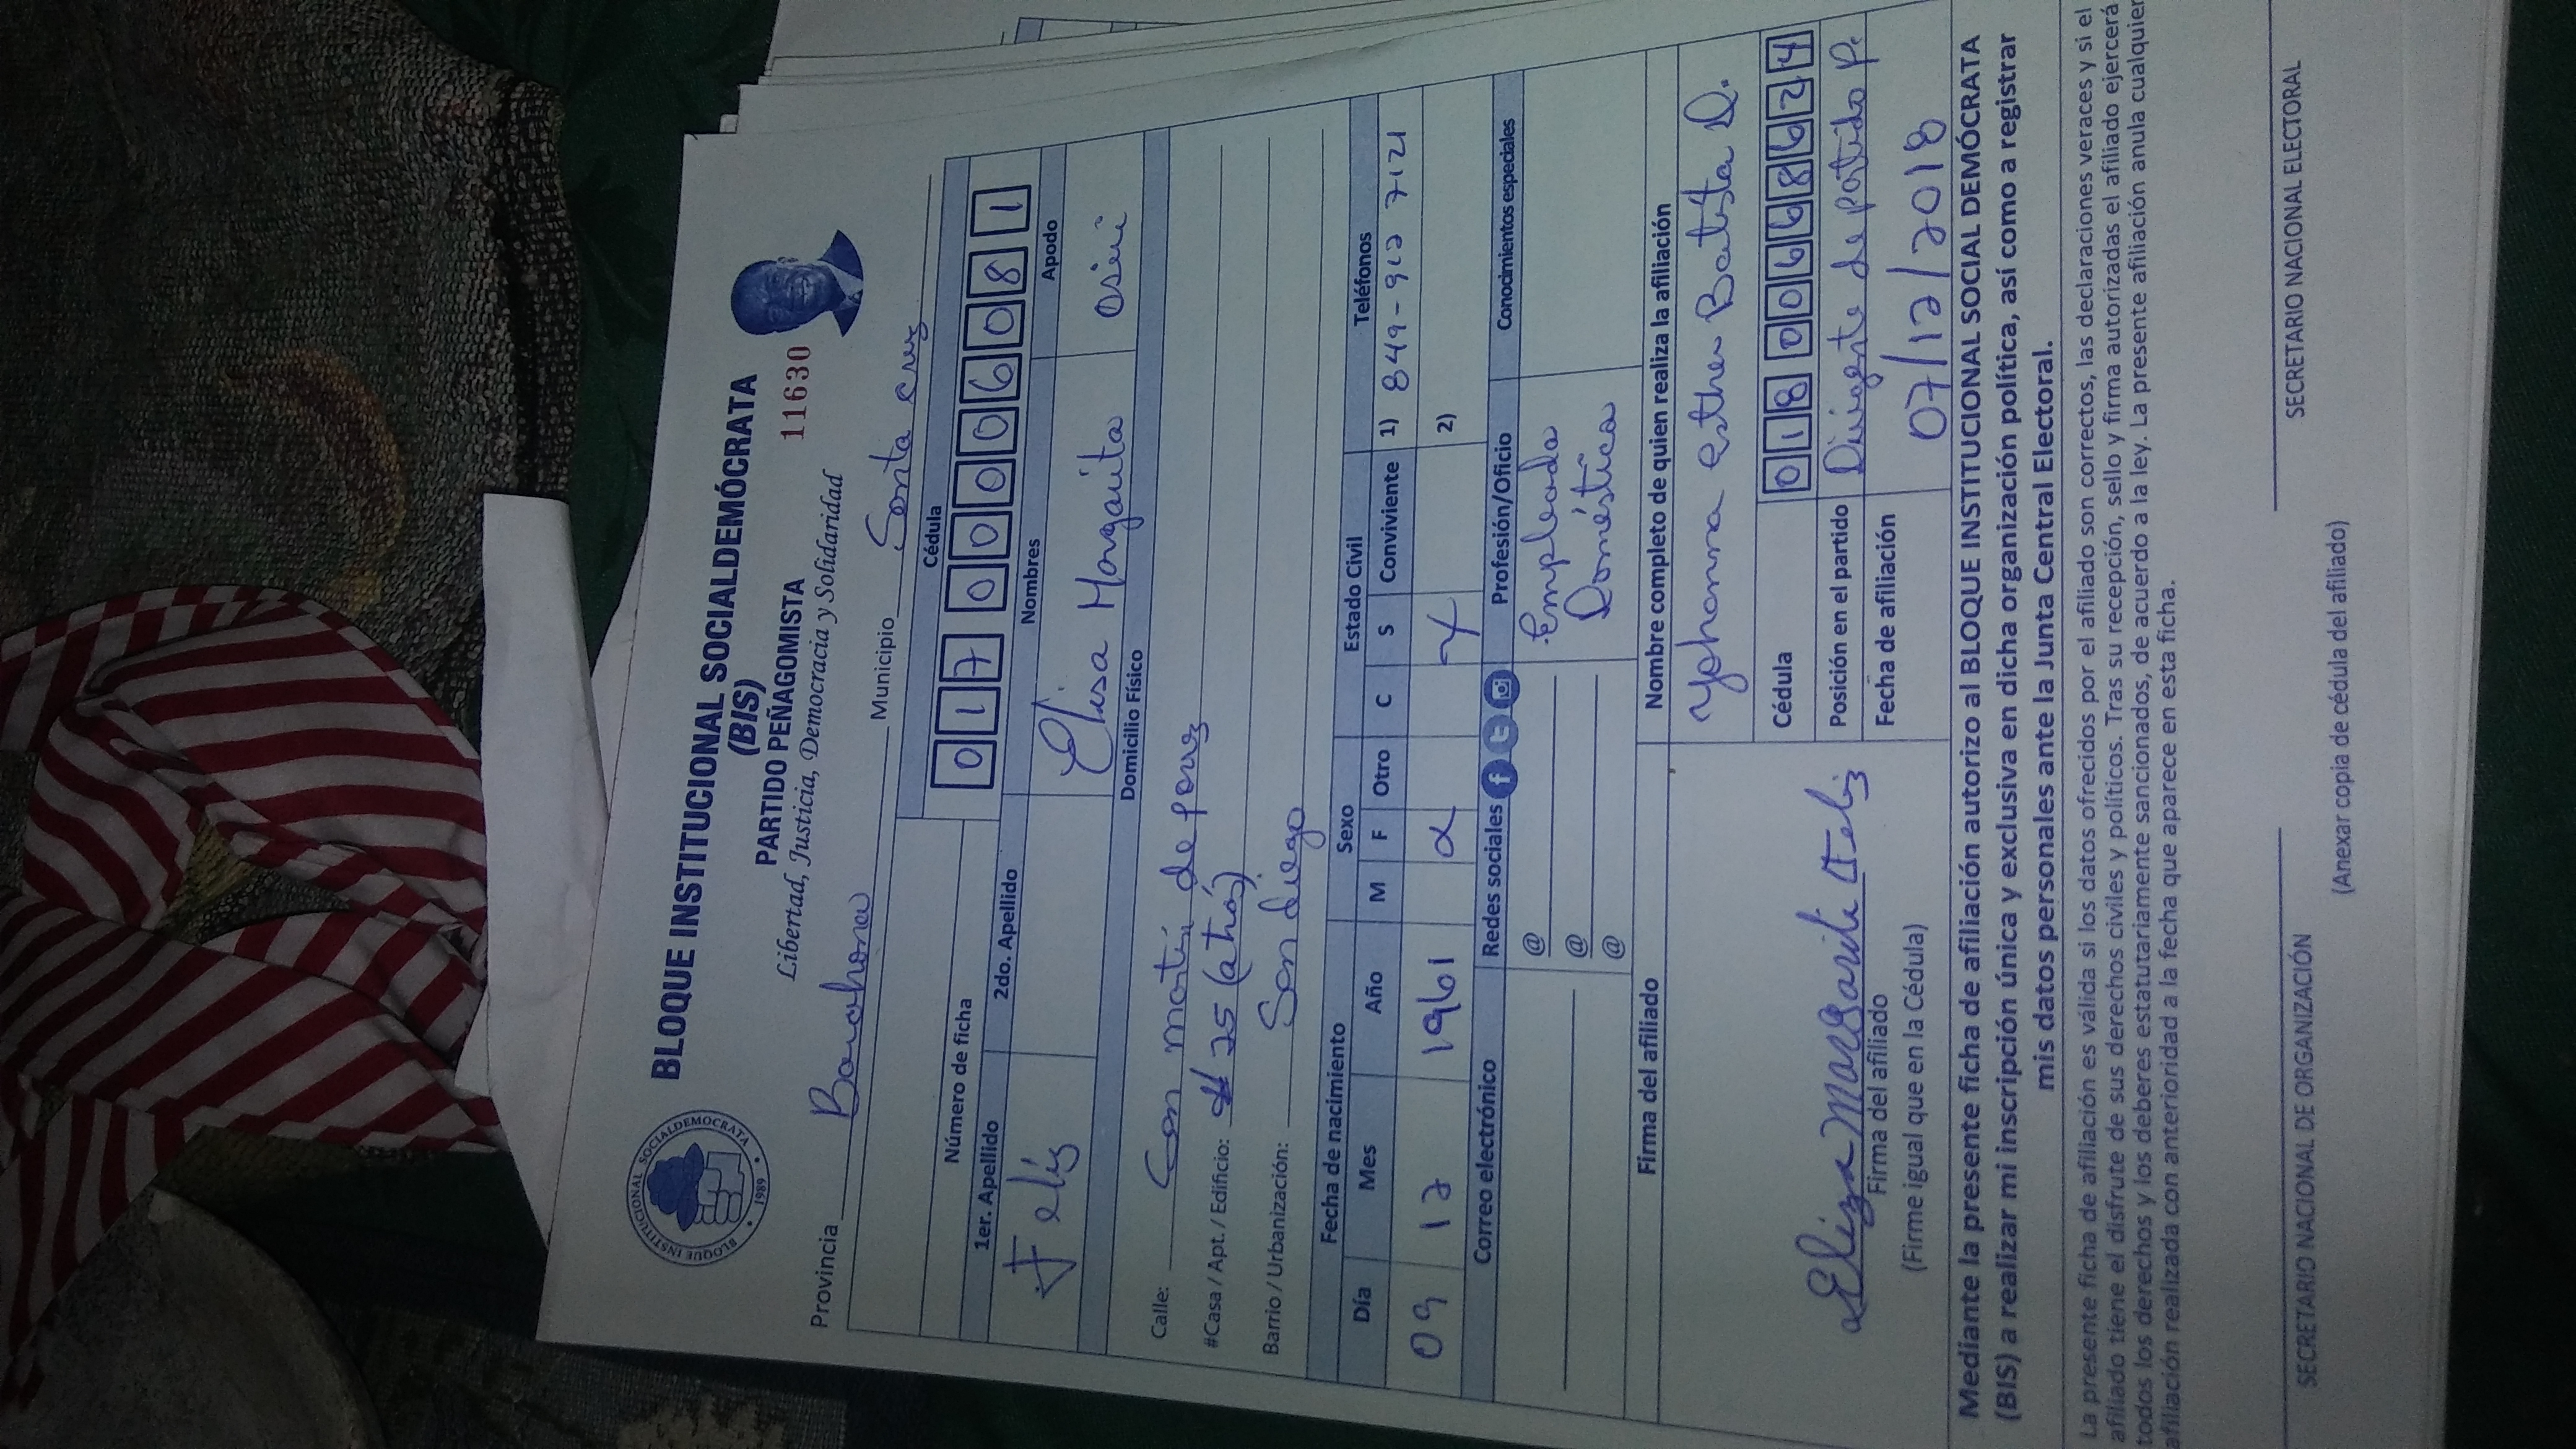 BLOQUE INSTITUCIONAL SOCIALDEMÓCRATA
(BIS)
PARTIDO PEÑAGOMISTA
Libertad, Justicia, Democracia y Solidaridad
11630
BLOQUE INSTITUCIONAL SOCIALDEMOCRATA
1989
Provincia Barahona Municipio Santa cruz
Número de ficha Cédula
0 1 7 0 0 0 0 6 0 8 1
1er. Apellido 2do. Apellido Nombres Apodo
Feliz Elisa Margarita Osiri
Domicilio Físico
Calle: San martín de porres
#Casa / Apt. / Edificio: # 25 (atrás)
Barrio / Urbanización: San diego
Fecha de nacimiento Sexo Estado Civil Teléfonos
Día Mes Año M F Otro C S Conviviente 1) 849-912 7121
09 12 1961 X X 2)
Correo electrónico Redes sociales Profesión/Oficio Conocimientos especiales
@ Empleada
@ Doméstica
@
Firma del afiliado Nombre completo de quien realiza la afiliación
Yohanna Esther Batista D.
Cédula 0 1 8 0 0 6 6 8 6 2 4
Posición en el partido Dirigente de partido P.
Fecha de afiliación 07/12/2018
Eliza Margarita Feliz
Firma del afiliado
(Firme igual que en la Cédula)
Mediante la presente ficha de afiliación autorizo al BLOQUE INSTITUCIONAL SOCIAL DEMÓCRATA
(BIS) a realizar mi inscripción única y exclusiva en dicha organización política, así como a registrar
mis datos personales ante la Junta Central Electoral.
La presente ficha de afiliación es válida si los datos ofrecidos por el afiliado son correctos, las declaraciones veraces y si el
afiliado tiene el disfrute de sus derechos civiles y políticos. Tras su recepción, sello y firma autorizadas el afiliado ejercerá
todos los derechos y los deberes estatutariamente sancionados, de acuerdo a la ley. La presente afiliación anula cualquier
afiliación realizada con anterioridad a la fecha que aparece en esta ficha.
SECRETARIO NACIONAL DE ORGANIZACIÓN SECRETARIO NACIONAL ELECTORAL
(Anexar copia de cédula del afiliado)